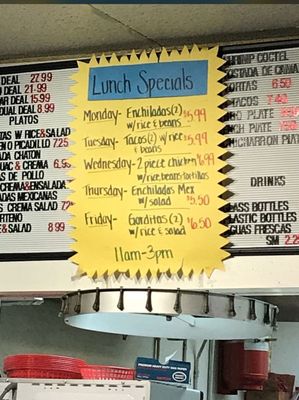 Lunch Specials
Monday- Enchiladas(2) $5.99
w/rice & beans
Tuesday- Tacos(2) w/rice $5.99
& beans
Wednesday- 2 piece chicken $6.99
w/rice, beans, tortillas
Thursday- Enchiladas Mex $5.50
w/ salad
Friday- Gorditas(2) $6.50
w/ rice & salad
11am-3pm
DEAL 27.99
DEAL 21.99
DEAL 15.99
DEAL 8.99
PLATOS
TAS W RICE&SALAD
PICADILLO 7.25
CHATON
& CREMA 7.99
6.99
DE POLLO
CREMA&ENSALADA
MEXICANAS
CREMA SALAD
& SALAD 8.99
SHRIMP COCTEL
TOSTADA DE CAMARON
TORTAS 6.50
TACOS
PLATE
PLATE
CHICHARRON PLATE
DRINKS
GLASS BOTTLES
PLASTIC BOTTLES
AGUAS FRESCAS
SM